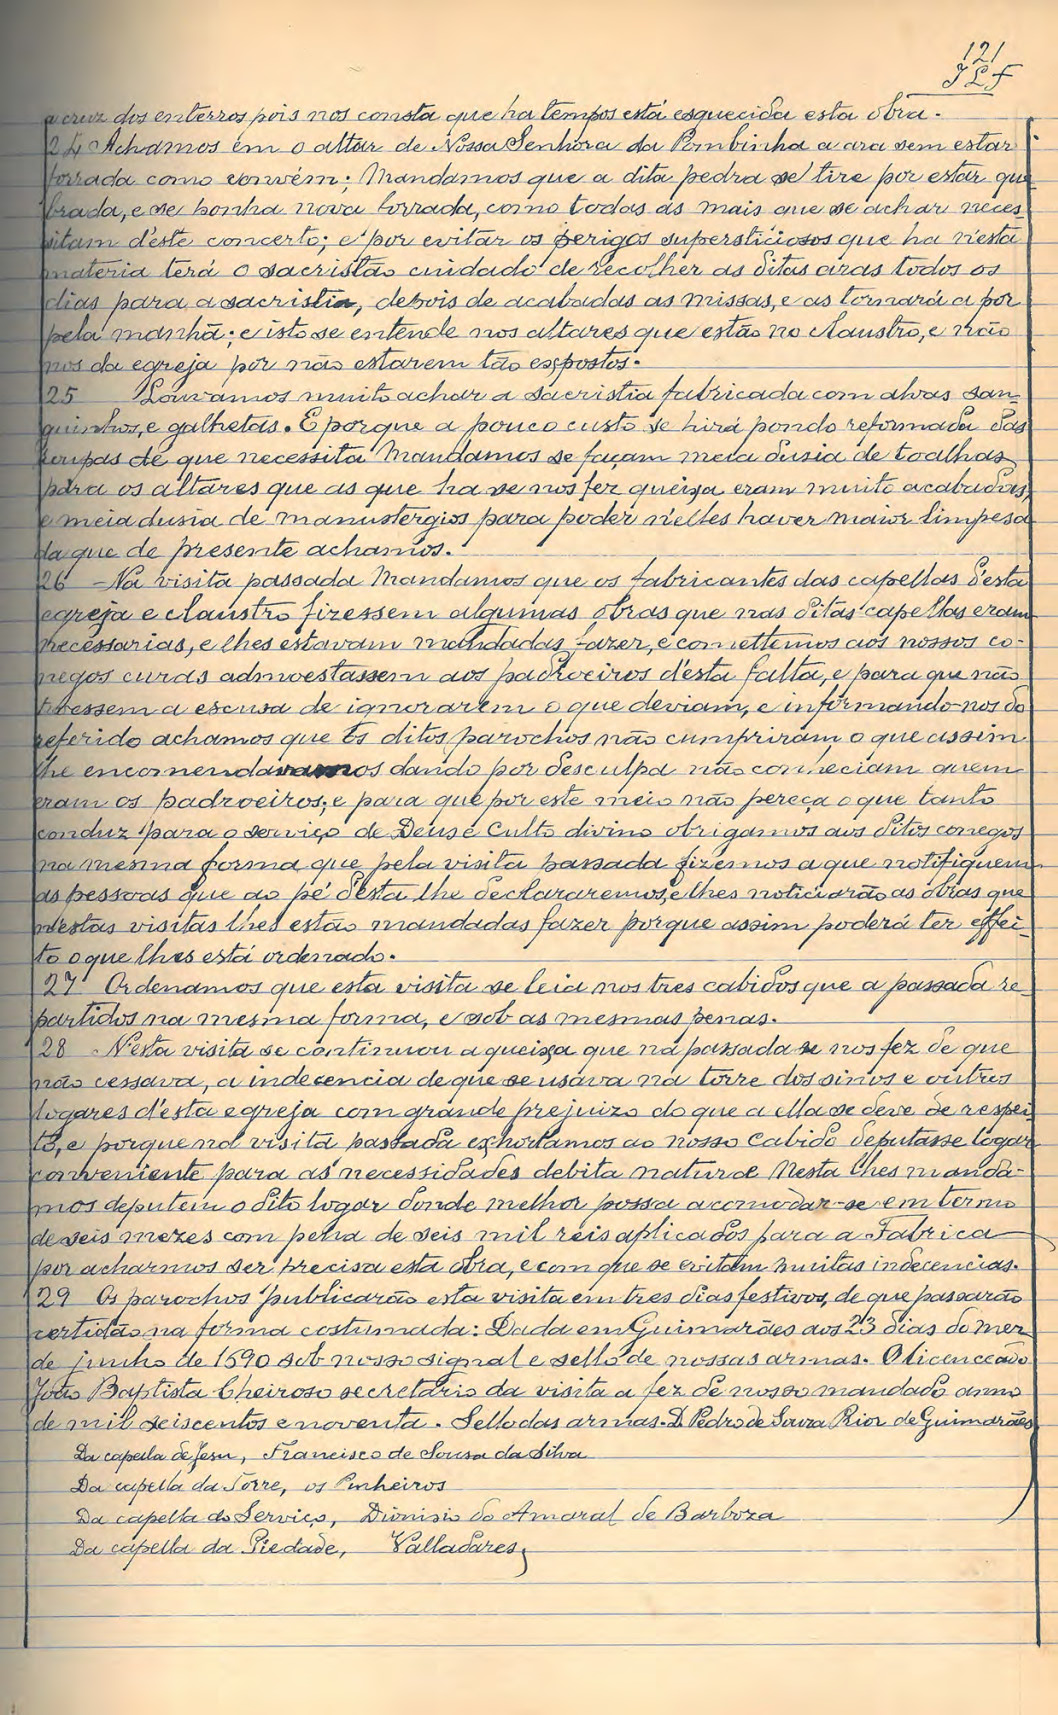 121
JLF
a cruz dos enterros pois nos consta que ha tempos está esquecida esta obra.
24 Achamos em o altar de Nossa Senhora da Pombinha a ara sem estar
forrada como convém; Mandamos que a dita pedra se tire por estar que
brada, e se ponha nova forrada, como todas as mais que se achar neces-
sitam d'este concerto; e por evitar os perigos supersticiosos que ha n'esta
materia terá o sacristão cuidado de recolher as ditas aras todos os
dias para a sacristia, depois de acabadas as missas, e as tornará a por
pela manhã; e isto se entende nos altares que estão no claustro, e não
nos da egreja por não estarem tão expostos.
25 Louvamos muito achar a sacristia fabricada com alvas san-
guinhos, e galhetas. E porque a pouco custo se hirá pondo reformada das
roupas de que necessita Mandamos se façam meia dusia de toalhas
para os altares que as que ha se nos fez queixa eram muito acabadas,
e meia dusia de manustergios para poder n'elles haver maior limpesa
da que de presente achamos.
26 Na visita passada Mandamos que os fabricantes das capellas d'esta
egreja e claustro fizessem algumas obras que nas ditas capellas eram
necessarias, e lhes estavam mandadas fazer, e comettemos aos nossos co-
negos curas admoestassem aos padroeiros d'esta falta, e para que não
tivessem a escusa de ignorarem o que deviam, e informando-nos do
referido achamos que os ditos parochos não cumpriram o que assim
lhe encomendavamos dando por desculpa não conheciam quem
eram os padroeiros; e para que por este meio não pereça o que tanto
conduz para o serviço de Deus e Culto divino obrigamos aos ditos conegos
na mesma forma que pela visita passada fizemos a que notifiquem
as pessoas que ao pé d'esta lhe declararemos, e lhes noticiarão as obras que
n'estas visitas lhes estão mandadas fazer porque assim poderá ter effei-
to o que lhes está ordenado.
27 Ordenamos que esta visita se leia nos tres cabidos que a passada re-
partidos na mesma forma, e sob as mesmas penas.
28 N'esta visita se continuou a queixa que na passada se nos fez de que
não cessava, a indecencia de que se usava na torre dos sinos e outros
logares d'esta egreja com grande prejuizo do que a ella se deve de respei
to, e porque na visita passada exhortamos ao nosso Cabido deputasse logar
conveniente para as necessidades debita naturæ Nesta lhes manda-
mos deputem o dito logar donde melhor possa acomodar-se em termo
de seis mezes com pena de seis mil reis aplicados para a Fabrica
por acharmos ser precisa esta obra, e com que se evitam muitas indecencias.
29 Os parochos publicarão esta visita em tres dias festivos, de que passarão
certidão na forma costumada: Dada em Guimarães aos 23 dias do mez
de junho de 1690 sob nosso signal e sello de nossas armas. O licenceado
João Baptista Cheiroso secretario da visita a fez de nosso mandado anno
de mil seiscentos e noventa. Sello das armas. D. Pedro de Souza Prior de Guimarães
Da capella de Jesu, Francisco de Sousa da Silva
Da capella da Torre, os Pinheiros
Da capella do Serviço, Dionisio do Amaral de Barboza
Da capella da Piedade, Valladares,